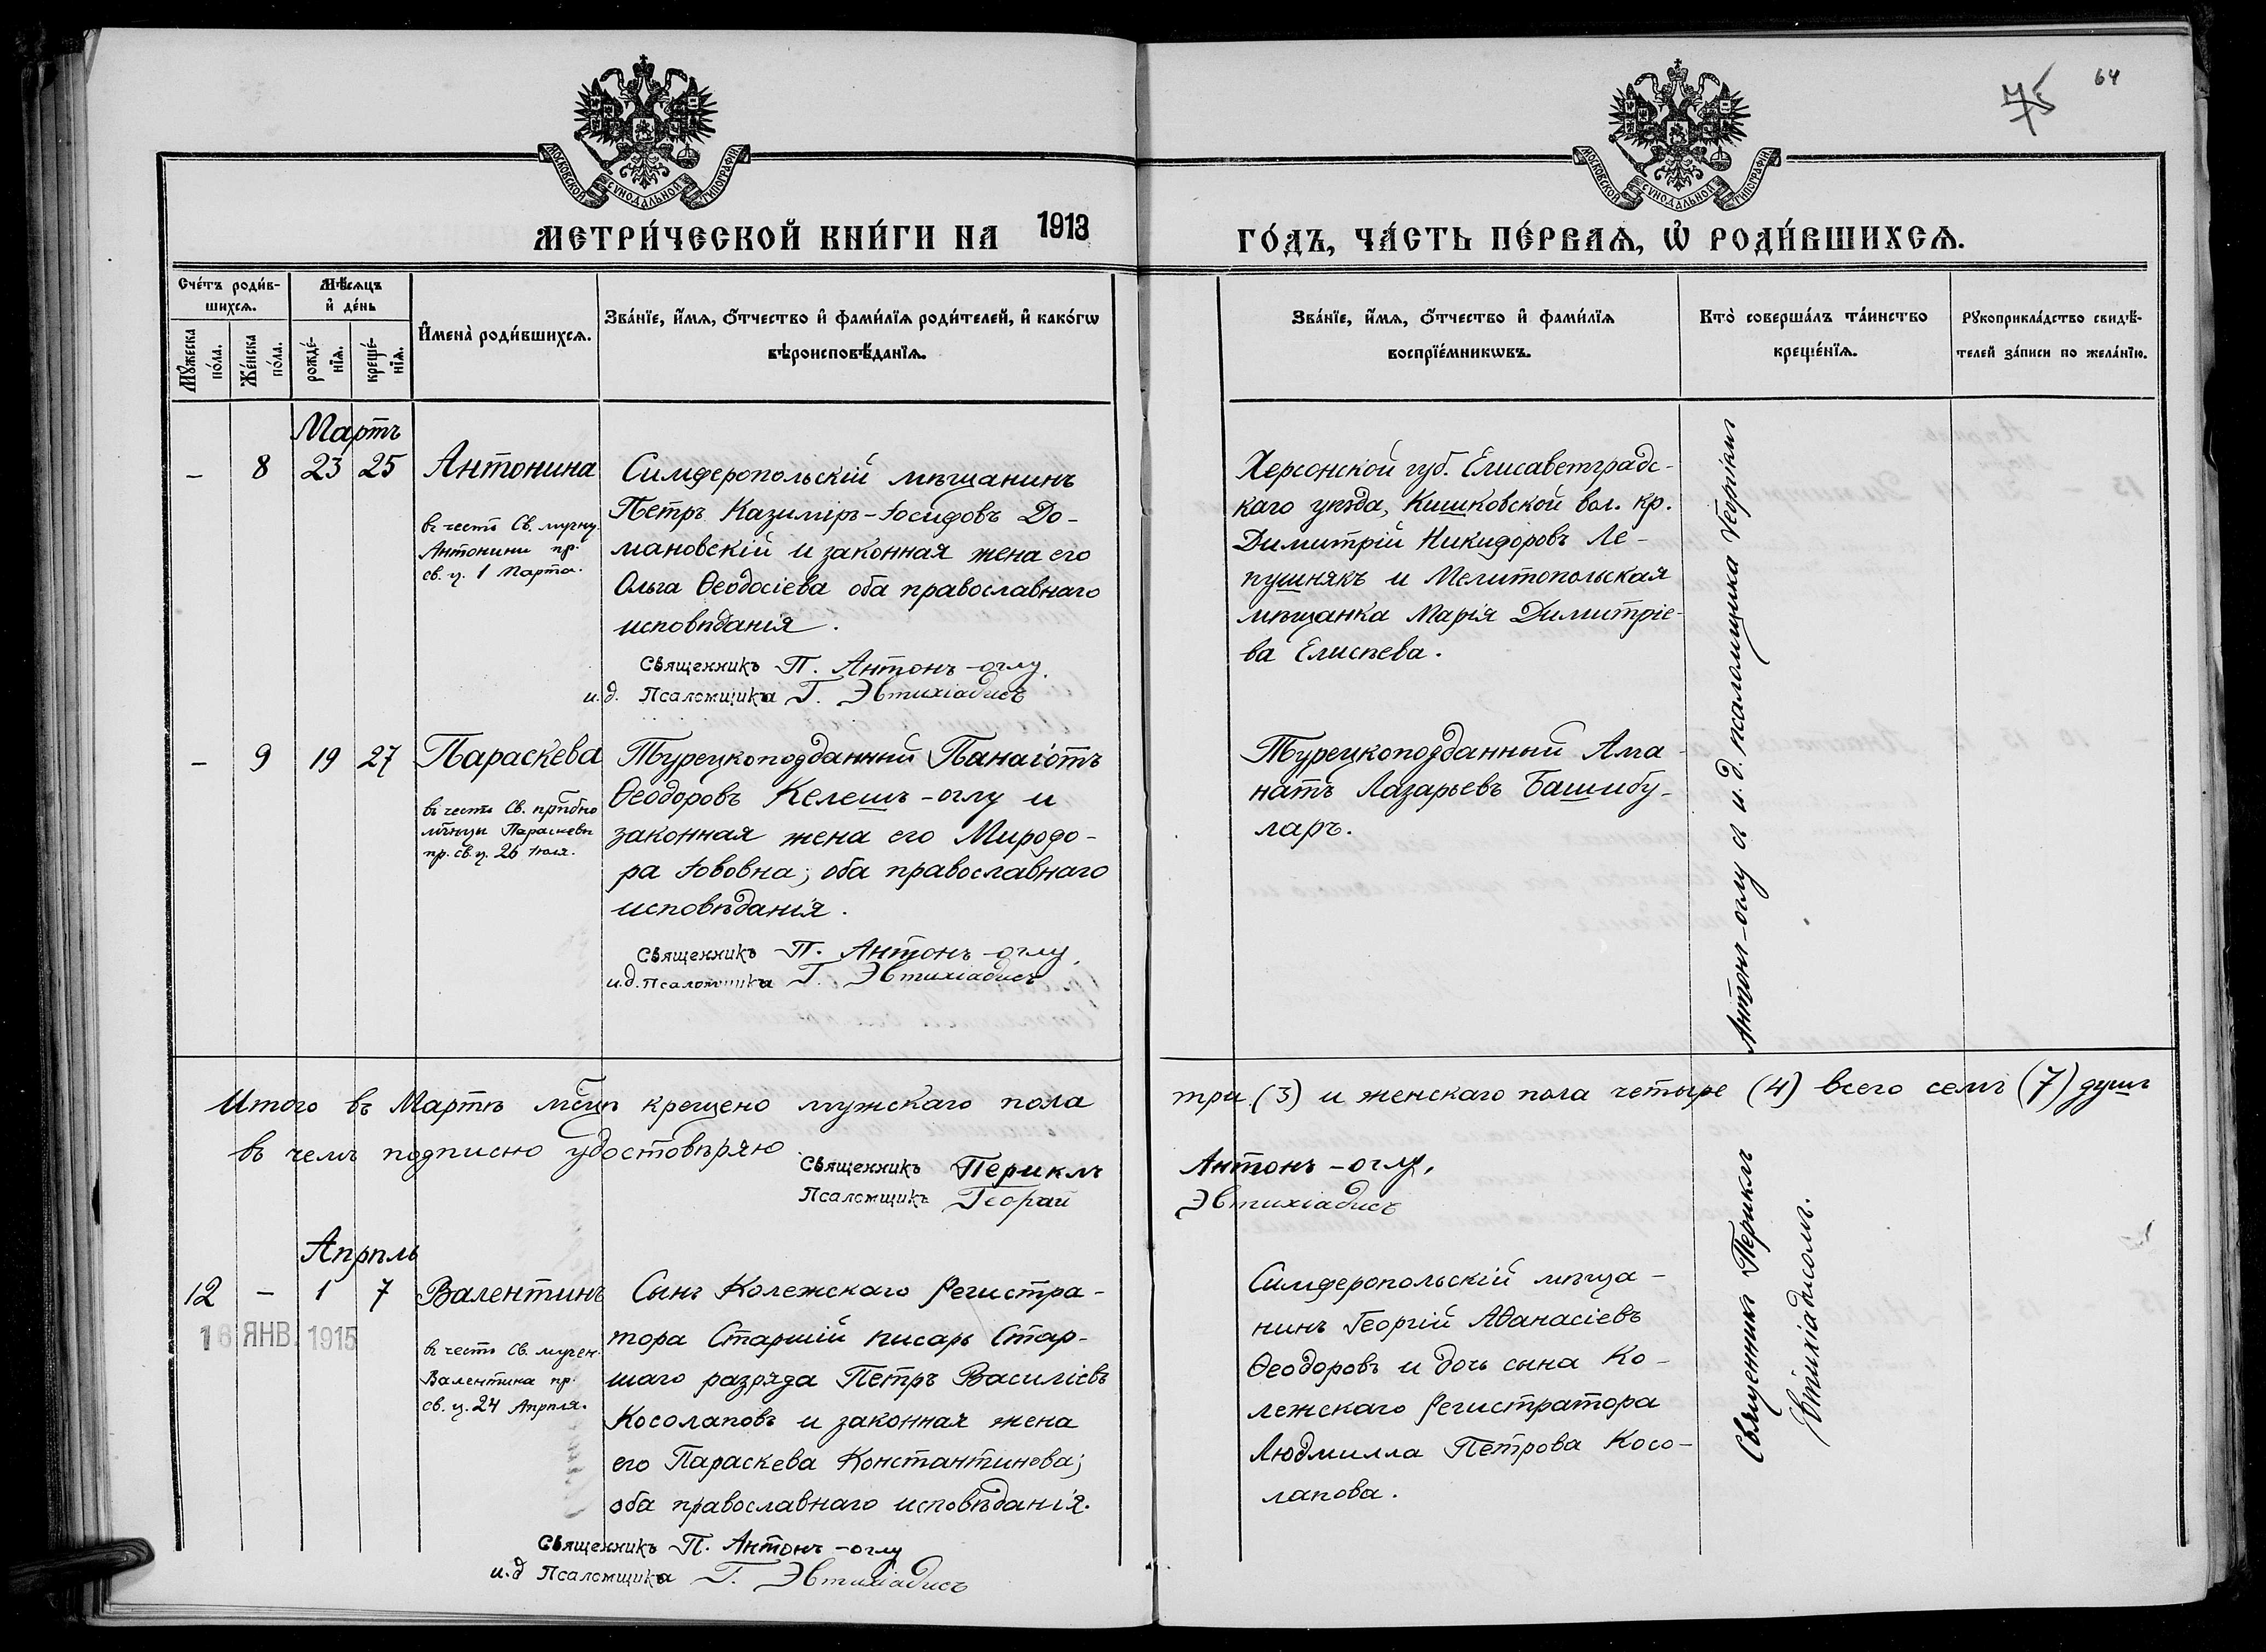 75
64
МОСКОВСКОЙ СѴНОДАЛЬНОЙ ТИПОГРАФІИ
МОСКОВСКОЙ СѴНОДАЛЬНОЙ ТИПОГРАФІИ
МЕТРИ́ЧЕСКОЙ КНИ́ГИ НА 1913
ГО́ДЪ, ЧА́СТЬ ПЕ́РВАѦ, Ѡ҆ РОДИ́ВШИХСѦ.
Сче́тъ роди́в-
шихсѧ.
Мѣ́сѧцъ
и҆ де́нь
Мꙋ́жеска
по́ла.
Же́нска
по́ла.
рожде́-
нїѧ.
креще́-
нїѧ.
И҆мена̀ роди́вшихсѧ.
Зва́нїе, и҆́мѧ, ѻ҆́тчество и҆ фами́лїѧ роди́телей, и҆ како́гѡ
вѣроисповѣ́данїѧ.
Зва́нїе, и҆́мѧ, ѻ҆́тчество и҆ фами́лїѧ
воспрїе́мникѡвъ.
Кто̀ соверша́лъ та́инство
креще́нїѧ.
Рꙋкоприкла́дство свидѣ́-
телей за́писи по жела́нїю.
Мартъ
– 8 23 25 Антонина
въ честь Св. мучну.
Антонины пр.
св. ц. 1 Марта.
Симферопольскій мѣщанинъ
Петръ Казиміръ-Іосифовъ До-
мановскій и законная жена его
Ольга Ѳеодосіева оба православнаго
исповѣданія.
Священникъ П. Антонъ-оглу.
и.д. Псаломщика Г. Эвтихіадисъ
Херсонской губ. Елисаветградс-
каго уѣзда, Кишковской вол. кр.
Димитрій Никифоровъ Ле-
пушнякъ и Мелитопольская
мѣщанка Марія Димитріе-
ва Елисѣева.
– 9 19 27 Параскева
въ честь Св. прпдбно
мчницы Параскевы
пр. св. ц. 26 Іюля.
Турецкоподданный Панаіотъ
Ѳеодоровъ Келешъ-оглу и
законная жена его Миродо-
ра Іововна; оба православнаго
исповѣданія.
Священникъ П. Антонъ-оглу.
и.д. Псаломщика Г. Эвтихіадисъ
Турецкоподданный Ама-
натъ Лазарьевъ Башибу-
ларъ.
Антонъ-оглу и и.д. псаломщика Георгіемъ
Итого въ Мартѣ мсцѣ крещено мужскаго пола
три (3) и женскаго пола четыре (4) всего семь (7) душъ
въ чемъ подписью удостовѣряю
Священникъ Периклъ
Антонъ-оглу,
Псаломщикъ Георгій
Эвтихіадисъ
Апрѣль
12 – 1 7 Валентинъ
16 ЯНВ. 1915
въ честь Св. мучен.
Валентина пр.
св. ц. 24 Апрѣля.
Сынъ Колежскаго Регистра-
тора Старшій писарь Стар-
шаго разряда Петръ Василіевъ
Косолаповъ и законная жена
его Параскева Константинова;
оба православнаго исповѣданія.
Священникъ П. Антонъ-оглу
и.д Псаломщика Г. Эвтихіадисъ
Симферопольскій мѣща-
нинъ Георгій Аѳанасіевъ
Ѳеодоровъ и дочь сына Ко-
лежскаго Регистратора
Людмилла Петрова Косо-
лапова.
Священникъ Периклъ
Эвтихіадисомъ.